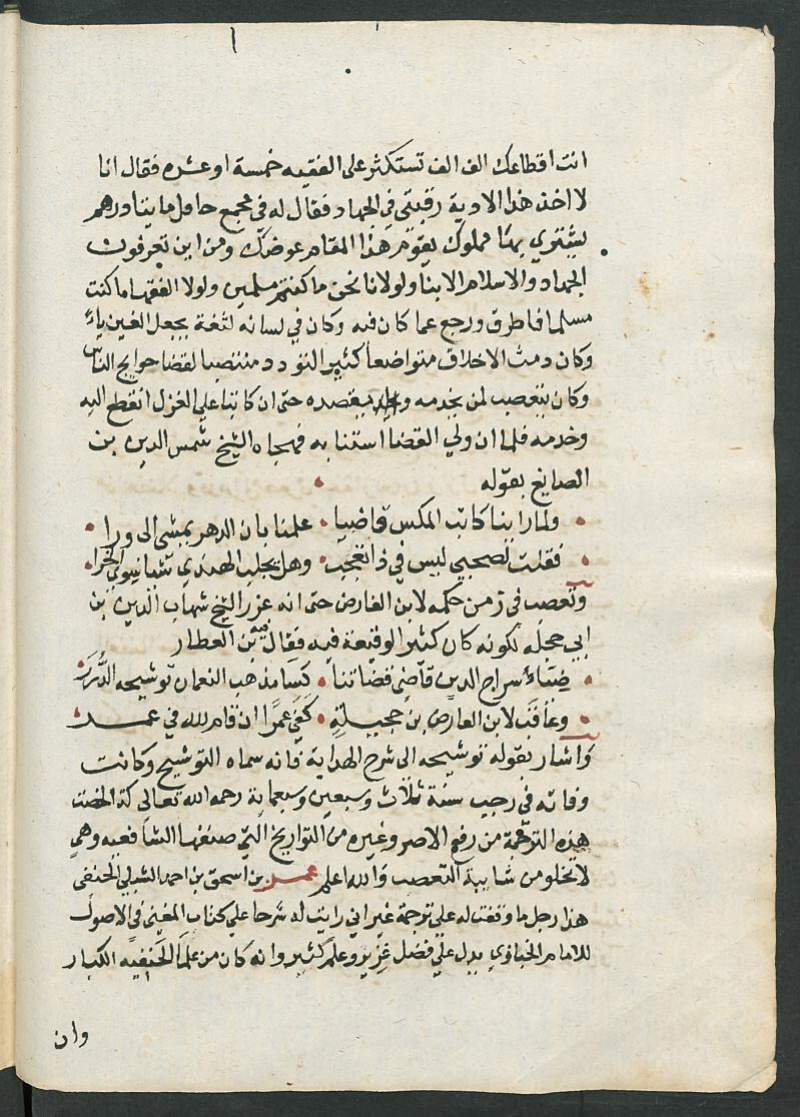 انت اقطاعك الف الف تستكثر على الفقيه خمسة او عشره فقال انا
لا اخذ هذا الا وية رقبتي في الجهاد فقال له في مجمع حافل ما يتا درهم
يشتري بها مملوك يقوم هذا المقام عوضك ومن اين تعرفون
الجهاد والاسلام الا بنا ولولانا نحن ما كنتم مسلمين ولولا الفقها ما كنت
مسلما فاطرق ورجع عما كان فيه وكان في لسانه لثغة يجعل الغين ياءً
وكان دمث الاخلاق متواضعا كثير التودد منتصبا لقضا حوايج الناس
وكان يتعصب لمن يخدمه و يقصده حتى ان كاتبا علي الغزل انقطع اليه
وخدمه فلما ان ولي القضا استنابه فهجاه الشيخ شمس الدين بن
الصايغ بقوله
ولما راينا كاتب المكس قاضيا علمنا بان الدهر يمشى الى ورا
فقلت لصحبي ليس في ذا تعجب وهل يجلب الهندي شيا سوي الخرا
وتعصب في زمن حكمه لابن الفارض حتى انه عزر الشيخ شهاب الدين بن
ابي حجله لكونه كان كثير الوقيعة فيه فقال فيه بن العطار
ضياء سراج الدين قاضي قضاتنا كسا مذهب النعمان توشيحه الدرر
وعاقب لابن الفارض بن حجيلة كفى عمرًا ان قام لله في عمر
واشار بقوله توشيحه الى شرح الهداية فانه سماه التوشيح وكانت
وفاته في رجب سنة ثلاث وسبعين وسبعماية رحمه الله تعالى كذا لخصت
هذه الترجمة من رفع الاصر وغيره من التواريخ التي صنفها الشافعيه وهي
لا تخلو من شايبة التعصب والله اعلم عمر بن اسحق بن احمد الحنفى
هذا رجل ما وقفت له علي ترجمة غير اني رايت له شرحا علي كتاب المغنى في الاصول
للامام الخبازي يدل علي فضل غزير وعلم كثير وانه كان من علما الحنفيه الكبار
وان